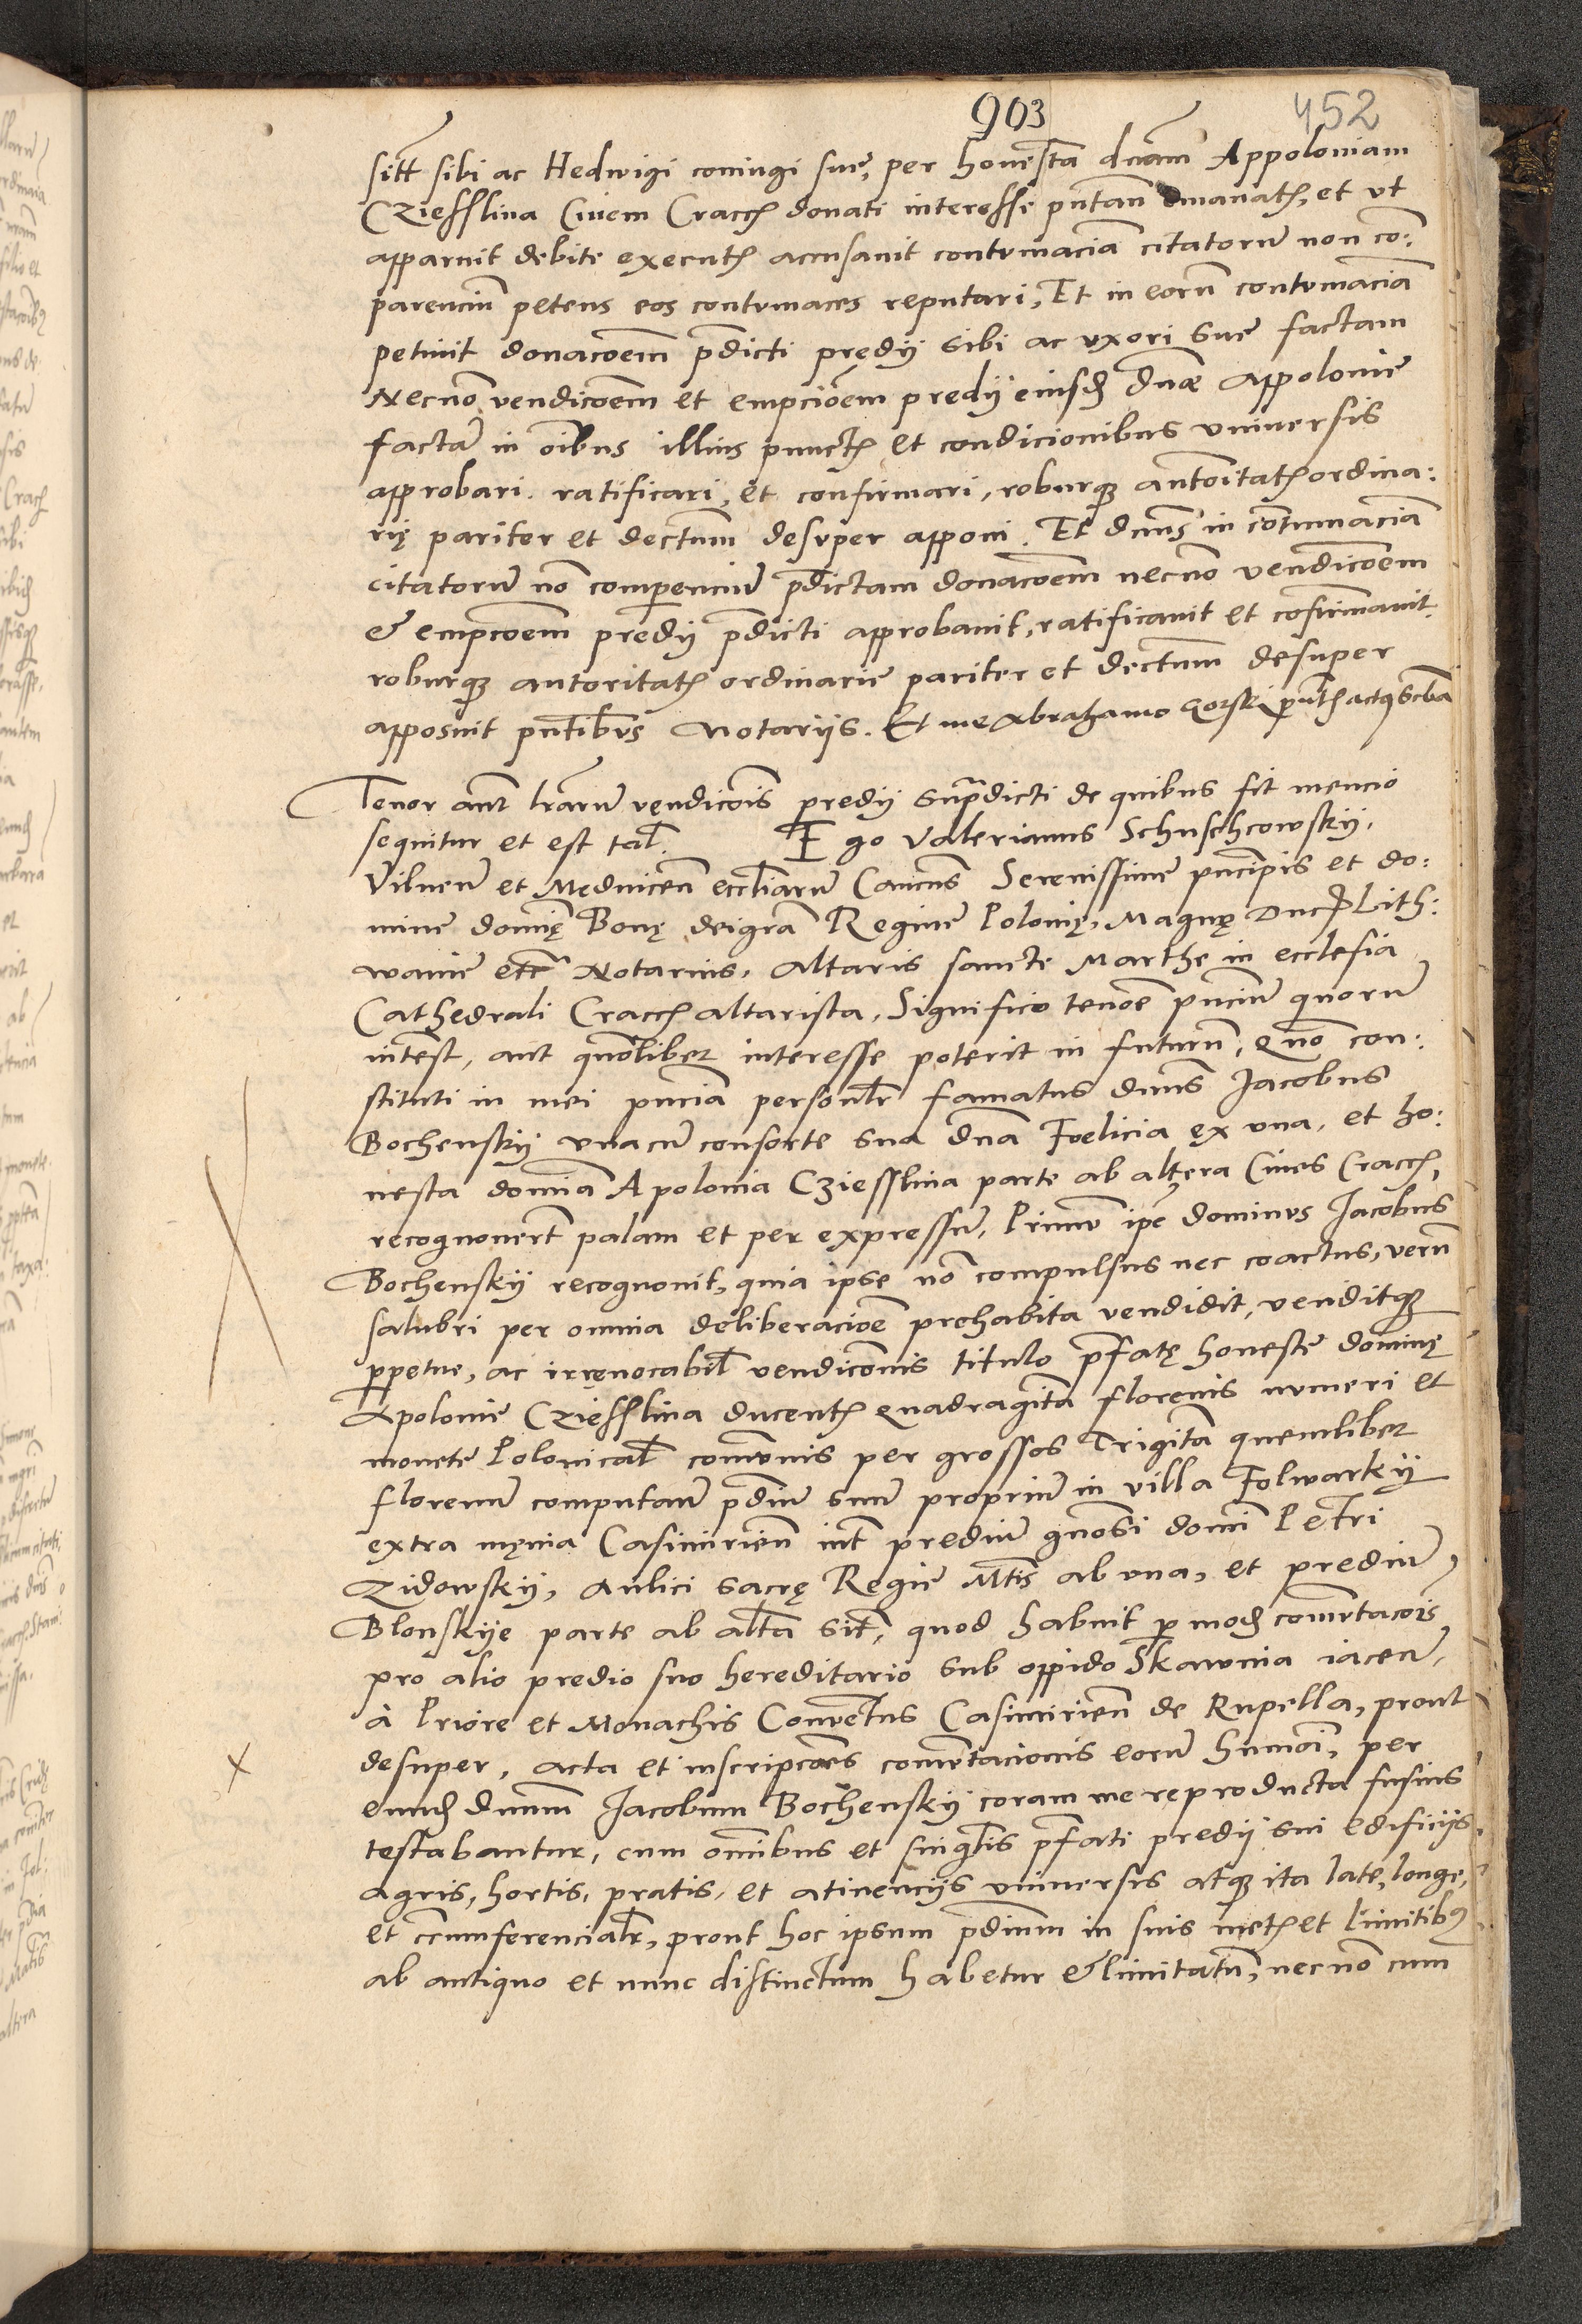 903 452
sitt sibi ac Hedwigi coniugi sue, per honesta dnam Appoloniam
Cziesslina Ciuem Cracc donati interesse pntan emanat, et vt
apparuit debite execut accusauit contvmaciā citatorū non co:
parenciū petens eos contvmaces reputari, Et in eorū contvmaciā
petiuit donacoem pdicti prędij sibi ac vxori sue factam
Necnō vendicoem et empcioēm predij eiusd dnæ Appolonie
factā in oībus illius punct et condicionibus vniuersis
approbari. ratificari, et confirmari, roburqz autoritat ordina:
rię pariter et dectum desvper apponi. Et dnus in contumaciā
citatorū nō comperenciū pdictam donacoem necnō vendicoem
& empcoem predij pdicti approbauit, ratificauit et cofirmauit
roburqz autoritat ordinarie pariter et dectum desuper
apposuit pntibvs Notarijs. Et me Abrahamo Gorski pnt actus scba
Tenor aut lrarū vendicois predij supradicti de quibus fit mencio
sequitur et est tal. Ego Valerianus Schuschcowskij,
Vilnen et Mednicen eccliarū Canicus Serenissime pncipis et do:
mine domię Bonę dei gra Regine Polonię, Magnę Duc Lith:
wanie etc Notarius, Altaris sancte Marthe in ecclesia
Cathedrali Cracc altarista, Significo tenore pnciū quorū
intest, aut quolibet interesse poterit in futurū, Quō con:
stituti in mei pncia personlr famatus dnus Jacobus
Bochenskij vnacū consorte sua dna Foelicia ex vna, et ho:
nesta domia Apolonia Cziesslina parte ab altera Ciues Cracc,
recognouert palam et per expressū, Primū ipe dominvs Jacobus
Bochenskij recognouit, quia ipse nō compulsus nec coactus, verū
salubri per omnia deliberacioē prehabita vendidit, venditqz
ppetue, ac irreuocabil vendicois titulo pfatę honeste dominę
Apolonie Cziesslina ducent Quadraginta florenis nvmeri et
monete Polonical comvnis per grossos Triginta quemlibet
florenū computan pdiū suū propriū in villa Folwarkij
extra męnia Casimirien int prediū gnosi domi Petri
Zidowskij, Aulici sacrę Regie Mtis ab vna, et prediū
Blonskije parte ab alta sit, quod habuit p mod comutacois
pro alio predio suo hereditario sub oppido Skawina iacen,
à Priore et Monachis Conuetus Casimirien de Rupella, prout
desuper, acta et inscripcoes comutacionis eorū humoi, per
eund dnum Jacobum Bochenskij coram me reproducta fusius
testabantur, cum omibus et singlis pfati predij sui edificijs,
agris, hortis, pratis, et atinencijs vniuersis atqz ita late, longe,
et ccumferencialr, prout hoc ipsum pdium in suis met et limitibus
ab antiquo et nunc distinctum habetur & limitatū, necnō cum